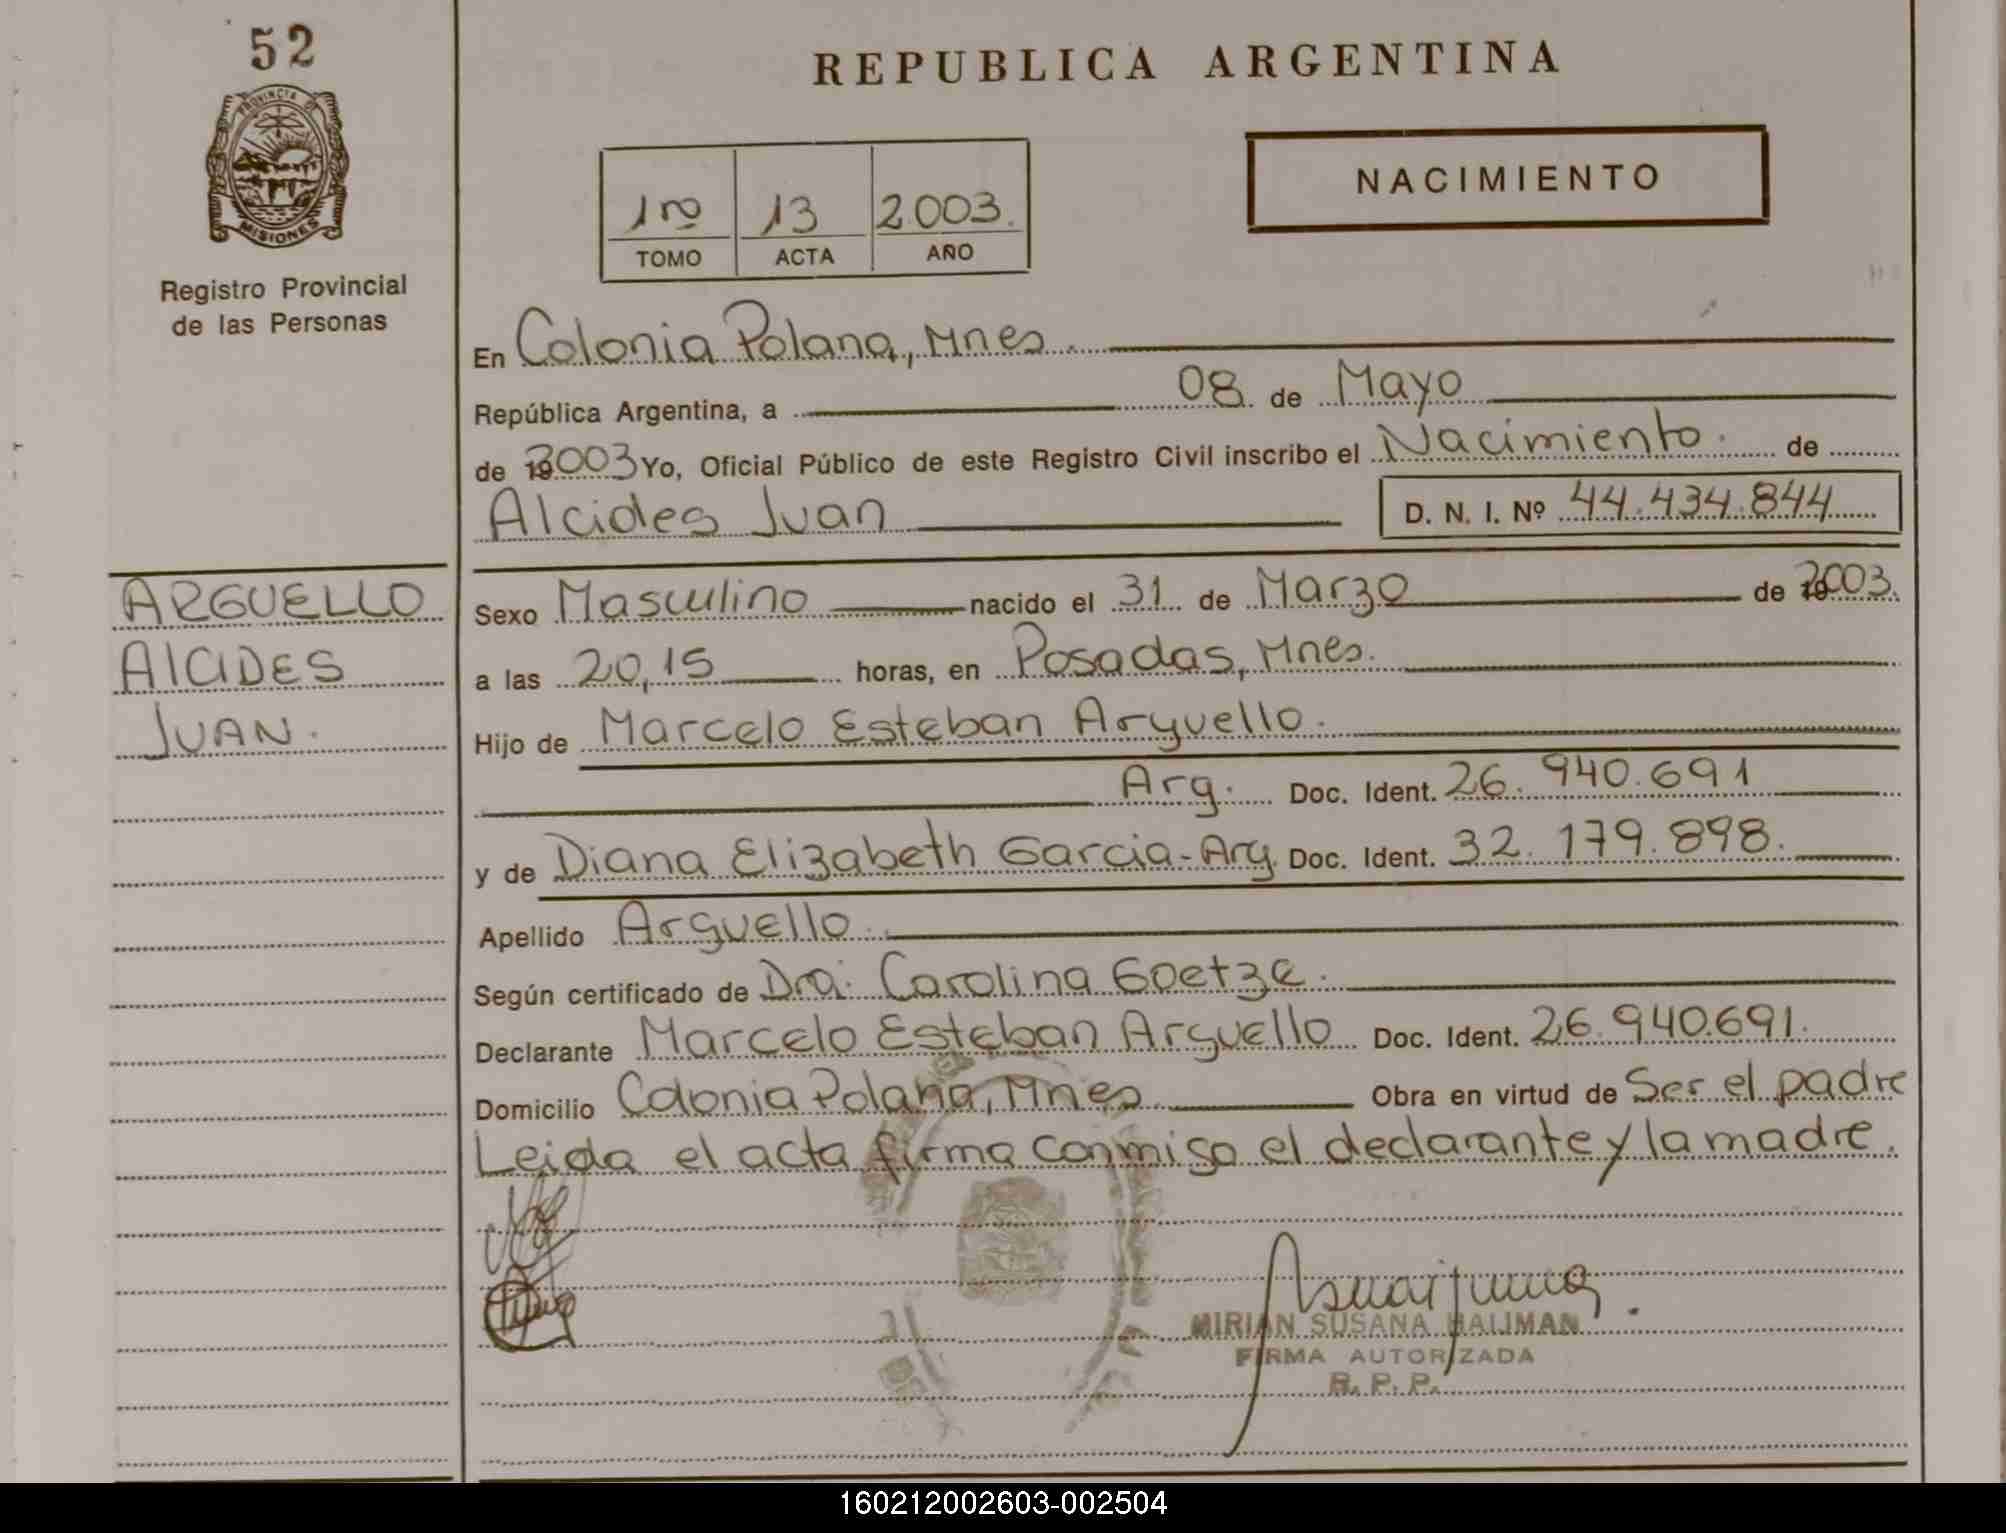 52
PROVINCIA DE
MISIONES
Registro Provincial
de las Personas
ARGUELLO
AlCIDES
JUAN.
REPUBLICA ARGENTINA
NACIMIENTO
1ro 13 2003.
TOMO ACTA AÑO
En Colonia Polana, Mnes.
República Argentina, a 08 de Mayo
de 2003 Yo, Oficial Público de este Registro Civil inscribo el Nacimiento. de
Alcides Juan D. N. I. Nº 44.434.844
Sexo Masculino nacido el 31 de Marzo de 2003.
a las 20,15 horas, en Posadas, Mnes.
Hijo de Marcelo Esteban Arguello.
Arg. Doc. Ident. 26.940.691
y de Diana Elizabeth Garcia-Arg. Doc. Ident. 32.179.898.
Apellido Arguello.
Según certificado de Dra. Carolina Goetze.
Declarante Marcelo Esteban Arguello Doc. Ident. 26.940.691.
Domicilio Colonia Polana, Mnes Obra en virtud de Ser el padre
Leida el acta firma conmigo el declarante y la madre.
MIRIAN SUSANA HALIMAN
FIRMA AUTORIZADA
R. P. P.
160212002603-002504